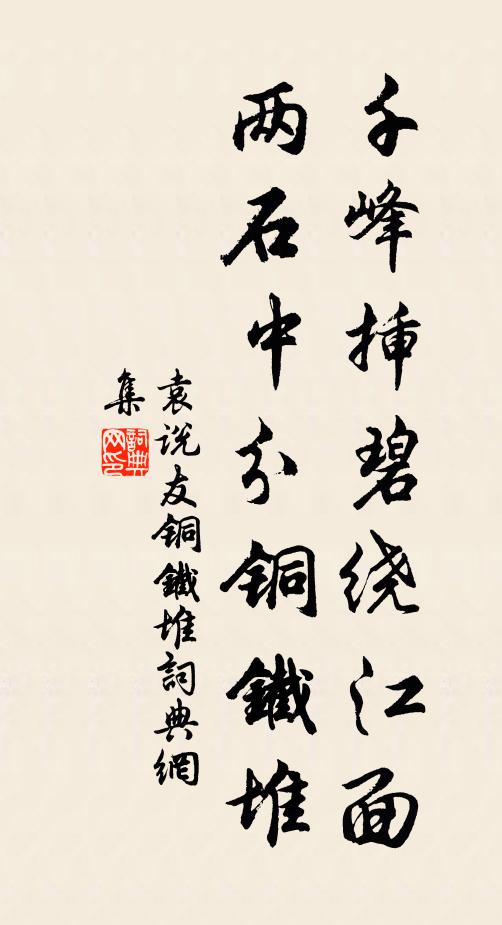 千峰插碧绕江面
两石中分铜鐵堆
袁说友铜鐵堆詞典網
集
詞典网印